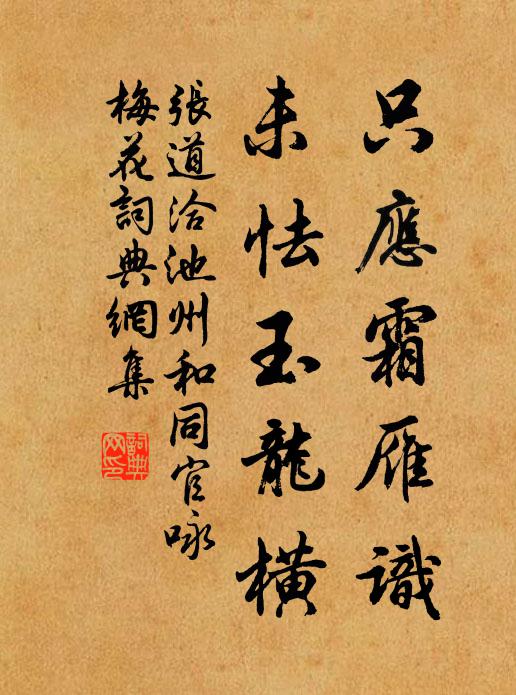 只應霜雁識
未怯玉龍橫
張道洽池州和同官咏
梅花詞典網集
詞典网印